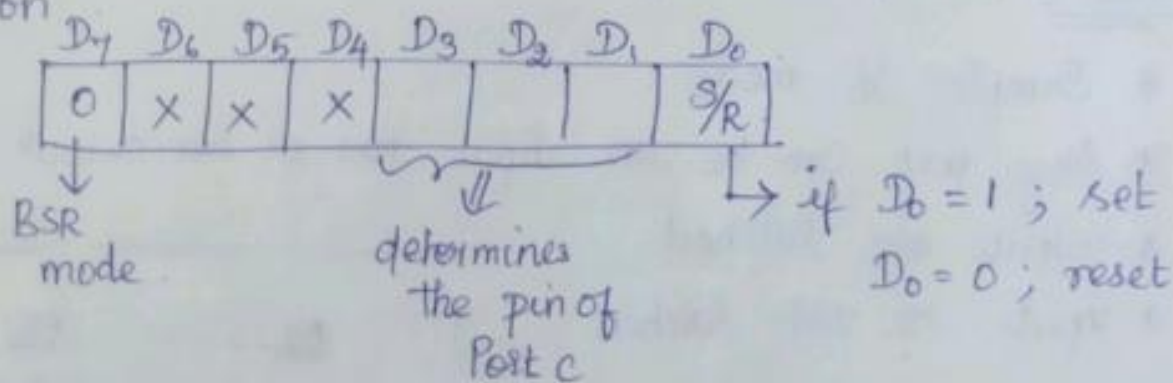 on
D7 D6 D5 D4 D3 D2 D1 D0
0 X X X S/R
BSR mode
determines the pin of Port C
if D0 = 1 ; set
D0 = 0 ; reset